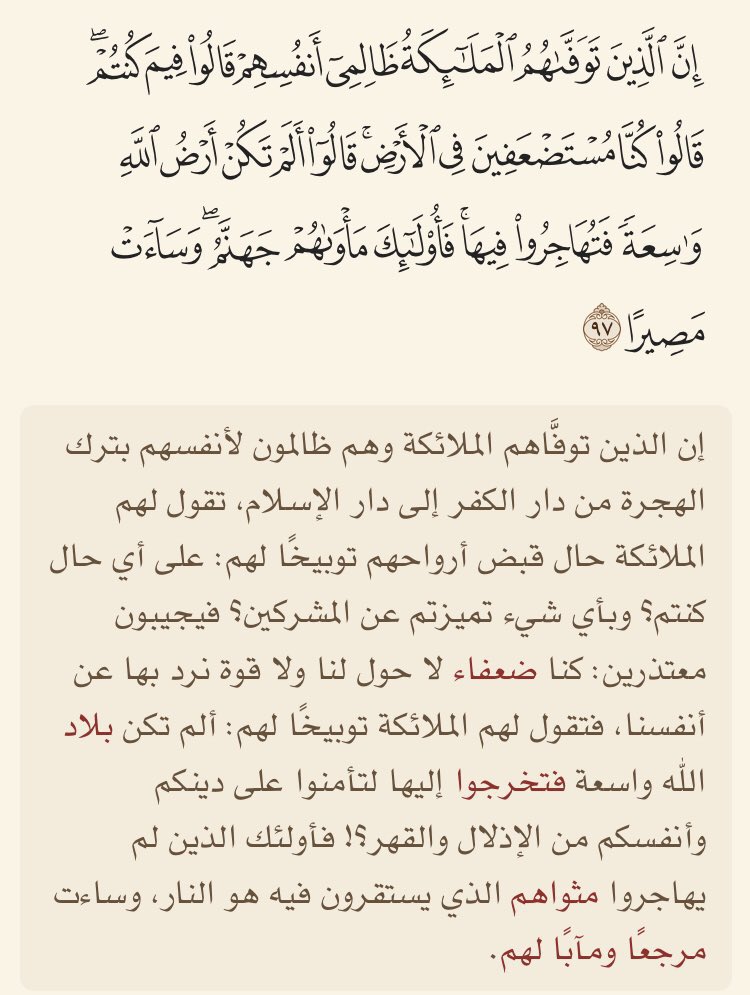 إِنَّ ٱلَّذِينَ تَوَفَّىٰهُمُ ٱلۡمَلَـٰۤىِٕكَةُ ظَالِمِیۤ أَنفُسِهِمۡ قَالُوا۟ فِیمَ كُنتُمۡۖ
قَالُوا۟ كُنَّا مُسۡتَضۡعَفِینَ فِی ٱلۡأَرۡضِۚ قَالُوۤا۟ أَلَمۡ تَكُنۡ أَرۡضُ ٱللَّهِ
وَ ٰ⁠سِعَةࣰ فَتُهَاجِرُوا۟ فِیهَاۚ فَأُو۟لَـٰۤىِٕكَ مَأۡوَىٰهُمۡ جَهَنَّمُۖ وَسَاۤءَتۡ
مَصِیرًا ٩٧
إن الذين توفَّاهم الملائكة وهم ظالمون لأنفسهم بترك
الهجرة من دار الكفر إلى دار الإسلام، تقول لهم
الملائكة حال قبض أرواحهم توبيخًا لهم: على أي حال
كنتم؟ وبأي شيء تميزتم عن المشركين؟ فيجيبون
معتذرين: كنا ضعفاء لا حول لنا ولا قوة نرد بها عن
أنفسنا، فتقول لهم الملائكة توبيخًا لهم: ألم تكن بلاد
الله واسعة فتخرجوا إليها لتأمنوا على دينكم
وأنفسكم من الإذلال والقهر؟! فأولئك الذين لم
يهاجروا مثواهم الذي يستقرون فيه هو النار، وساءت
مرجعًا ومآبًا لهم.